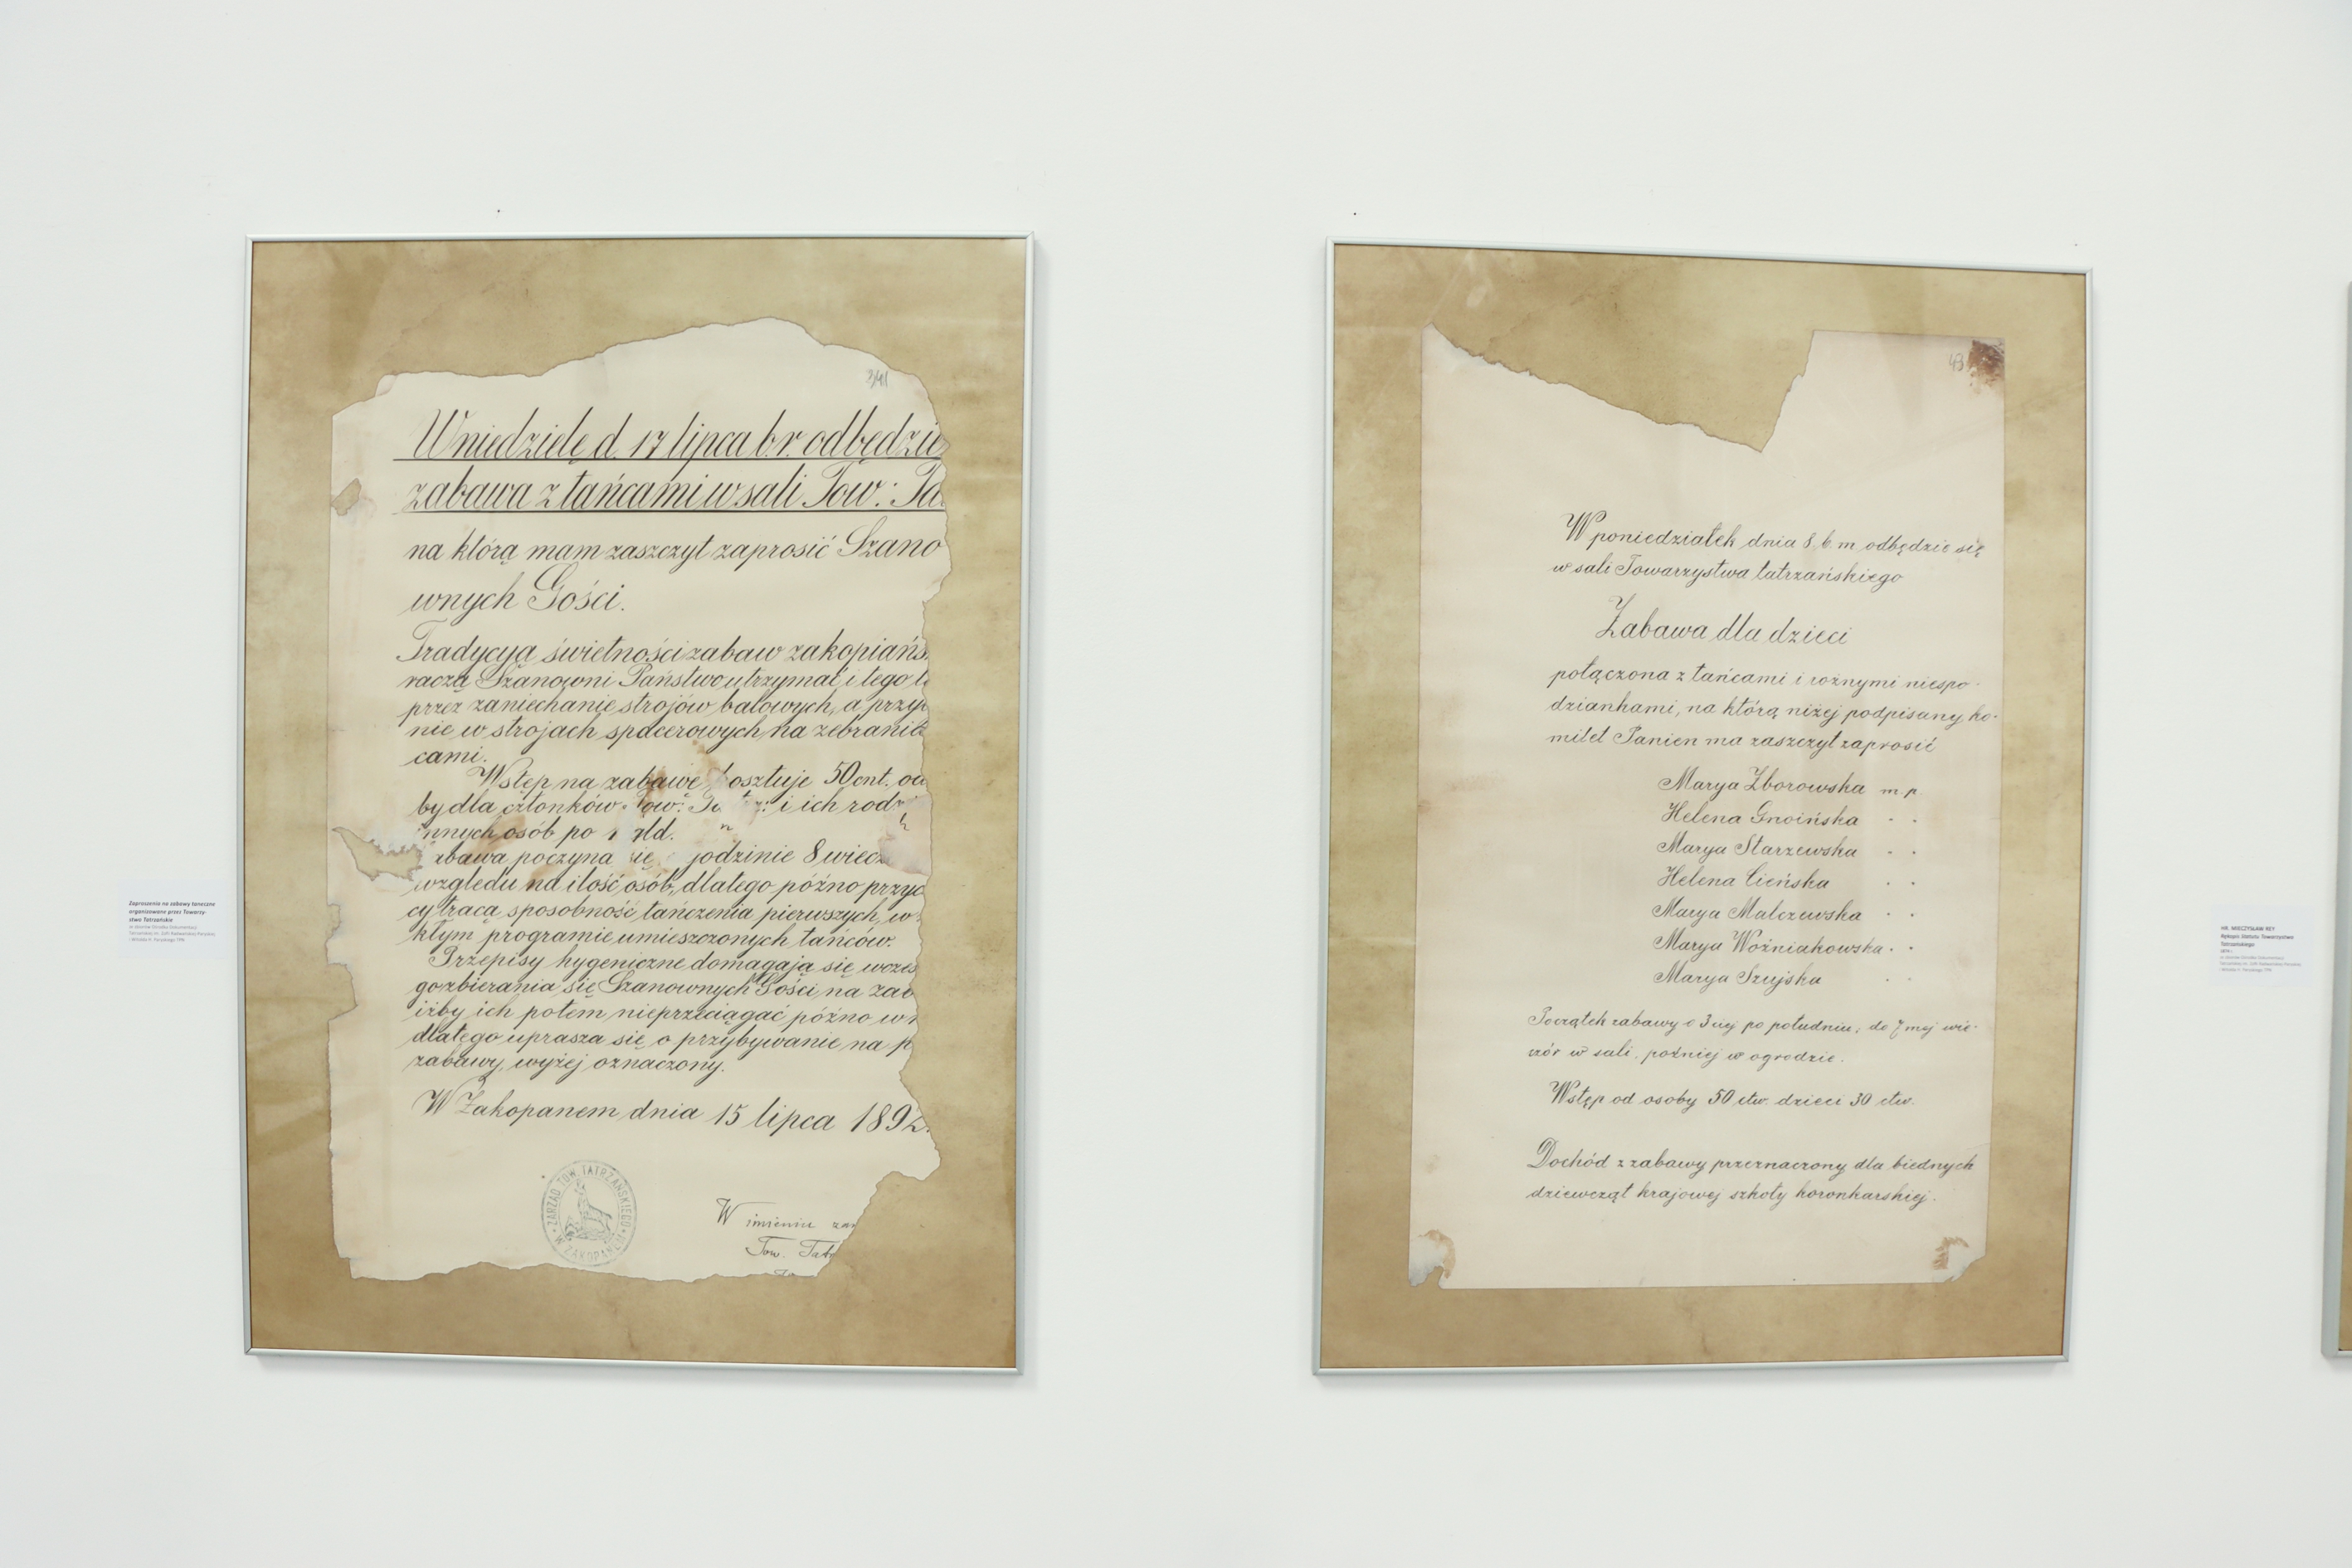 Zaproszenia na zabawy taneczne
organizowane przez Towarzy-
stwo Tatrzańskie
3/41
W niedzielę d. 17 lipca br. odbędzie
zabawa z tańcami w sali Tow.: Ta
na którą mam zaszczyt zaprosić Szano
wnych Gości.
Tradycyą świetności zabaw zakopiańs
raczą Szanowni Państwo utrzymać i tego
przez zaniechanie strojów balowych, a przy
nie w strojach spacerowych na zebrania
cami.
Wstęp na zabawę kosztuje 50 cnt. od
by dla członków Tow: i ich rodzi
innych osób po złd.
zabawa poczyna się godzinie 8 wiecz
względu na ilość osób, dlatego późno przyc
cy tracą sposobność tańczenia pierwszych, w
kłym programie umieszczonych tańców.
Przepisy hygeniczne domagają się wcześ
go zbierania się Szanownych Gości na zab
iżby ich potem nieprzeciągać późno w
dlatego uprasza się o przybywanie na p
zabawy, wyżej oznaczony.
W Zakopanem dnia 15 lipca 1892.
ZARZĄD TOW. TATRZAŃSKIEGO
W ZAKOPANEM
W imieniu zar
Tow. Tatr
43
W poniedziałek dnia 8. b. m. odbędzie się
w sali Towarzystwa tatrzańskiego
Zabawa dla dzieci
połączona z tańcami i rożnymi niespo-
dziankami, na którą niżej podpisany ko-
mitet Panien ma zaszczyt zaprosić
Marya Zborowska m. p.
Helena Gnoińska " "
Marya Starzewska " "
Helena Cieńska " "
Marya Malczewska " "
Marya Woźniakowska " "
Marya Szujska " "
Początek zabawy o 3ciej po południu, do 7mej wie-
czór w sali, poźniej w ogrodzie.
Wstęp od osoby 50 ctw. dzieci 30 ctw.
Dochód z zabawy przeznaczony dla biednych
dziewcząt krajowej szkoły koronkarskiej.
HR. MIECZYSŁAW REY
Rękopis Statutu Towarzystwa
Tatrzańskiego